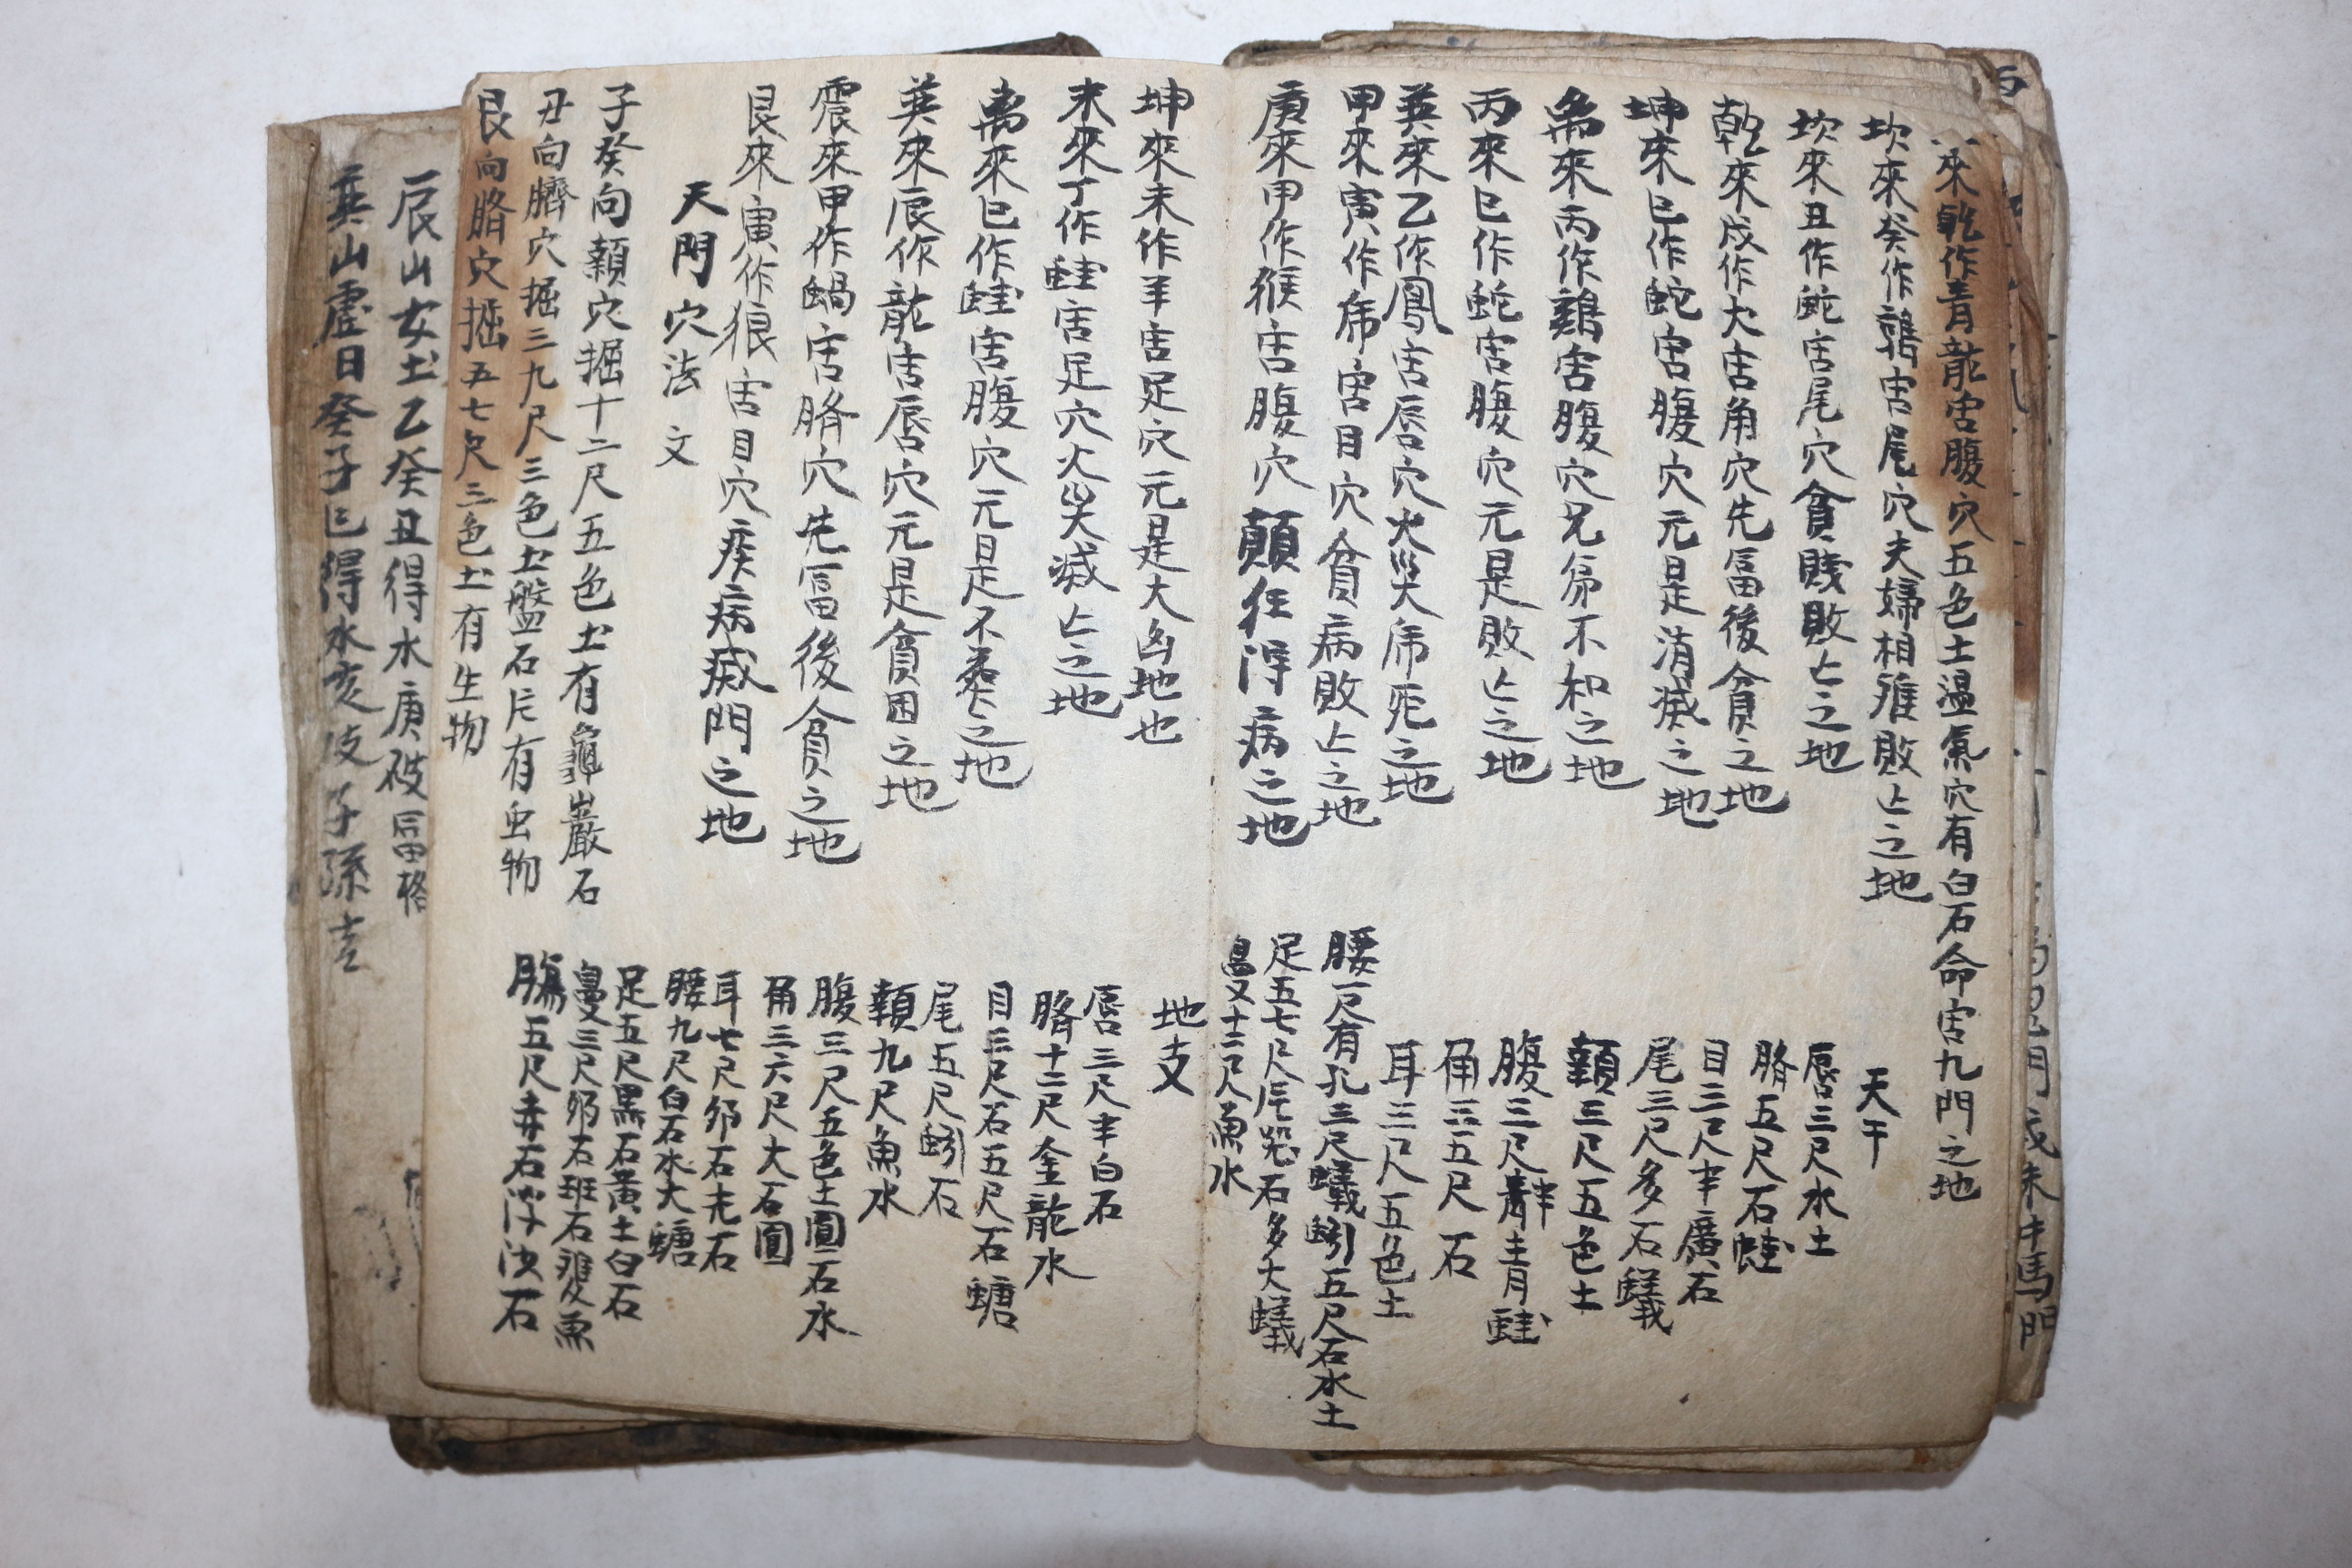 來乾作青龍害腹穴五色土溫氣穴有白石命害九門之地
坎來癸作鷄害尾穴夫婦相雖敗亡之地
坎來丑作蛇害尾穴貪賤敗亡之地
乾來戌作犬害角穴先富後貪之地
坤來巳作蛇害腹穴元是消滅之地
离來丙作鷄害腹穴兄弟不和之地
丙來巳作蛇害腹穴元是敗亡之地
巽來乙作鳳害唇穴火災虎死之地
甲來寅作虎害目穴貪病敗亡之地
庚來甲作猴害腹穴顚狂得病之地
天干
唇三尺水土
脐五尺石蛙
目三尺半廣石
尾三尺多石蟻
顙三尺五色土
腹三尺半青蛙
角三五尺石
耳三尺五色土
腰一尺有孔三尺蟻蚓五尺石水土
足五七尺石多大蟻
鼻又十二尺魚水
坤來未作羊害足穴元是大凶地也
未來丁作蛙害足穴火災滅亡之地
离來巳作蛙害腹穴元是不季之地
巽來辰作龍害唇穴元是貪困之地
震來甲作蝸害脐穴先富後貪之地
艮來寅作狼害目穴疾病滅門之地
天門穴法文
子癸向顙穴掘十二尺五色土有龜巖石
丑向臍穴掘三九尺三色土盤石片有虫物
艮向脐穴掘五七尺三色土有生物
地支
唇三尺半白石
脐十二尺金龍水
目三尺石五尺石螗
尾五尺蚓石
顙九尺魚水
腹三尺五色土圓石水
角三六尺大石圓
耳七尺卵石老石
腰九尺白石水大螗
足五尺黑石黃土白石
鼻三尺卵石班石雙魚
腸五尺赤石浮浊石
辰山女土乙癸丑得水庚破富格
巽山虛日癸子巳得水亥破子孫吉